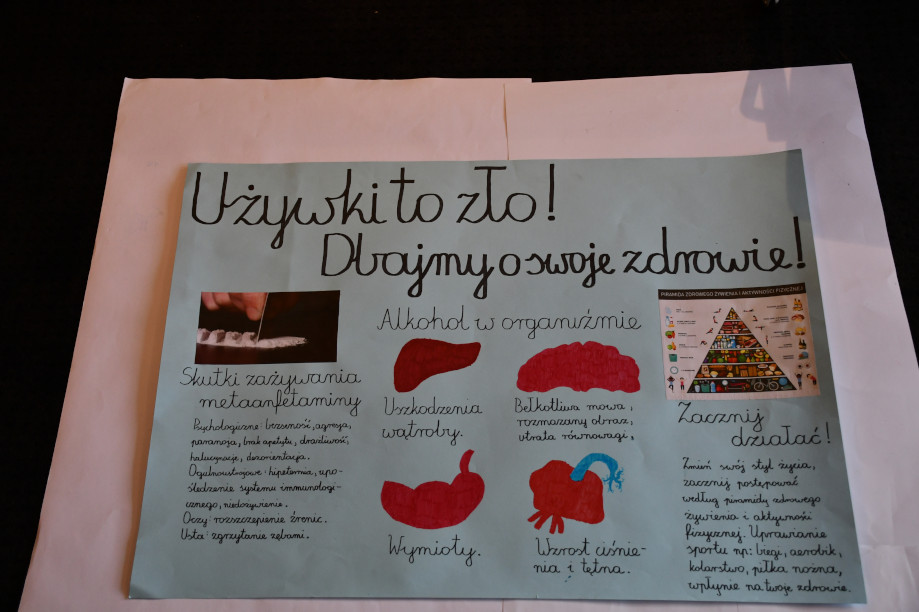 Używki to zło!
Dbajmy o swoje zdrowie!
Skutki zażywania
metaanfetaminy
Psychologiczne: bezsenność, agresja,
paranoja, brak apetytu, drażliwość,
halucynacje, dezorientacja.
Ogólnoustrojowe: hipetermia, upo-
śledzenie systemu immunologi-
cznego, niedożywienie.
Oczy: rozszczepienie źrenic.
Usta: zgrzytanie zębami.
Alkohol w organiźmie
Uszkodzenia
wątroby.
Bełkotliwa mowa,
rozmazany obraz,
utrata równowagi,
Wymioty.
Wzrost ciśnie-
nia i tętna.
PIRAMIDA ZDROWEGO ŻYWIENIA I AKTYWNOŚCI FIZYCZNEJ
Zacznij
działać!
Zmień swój styl życia,
zacznij postępować
według piramidy zdrowego
żywienia i aktywności
fizycznej. Uprawianie
sportu np: biegi, aerobik,
kolarstwo, piłka nożna,
wpłynie na twoje zdrowie.